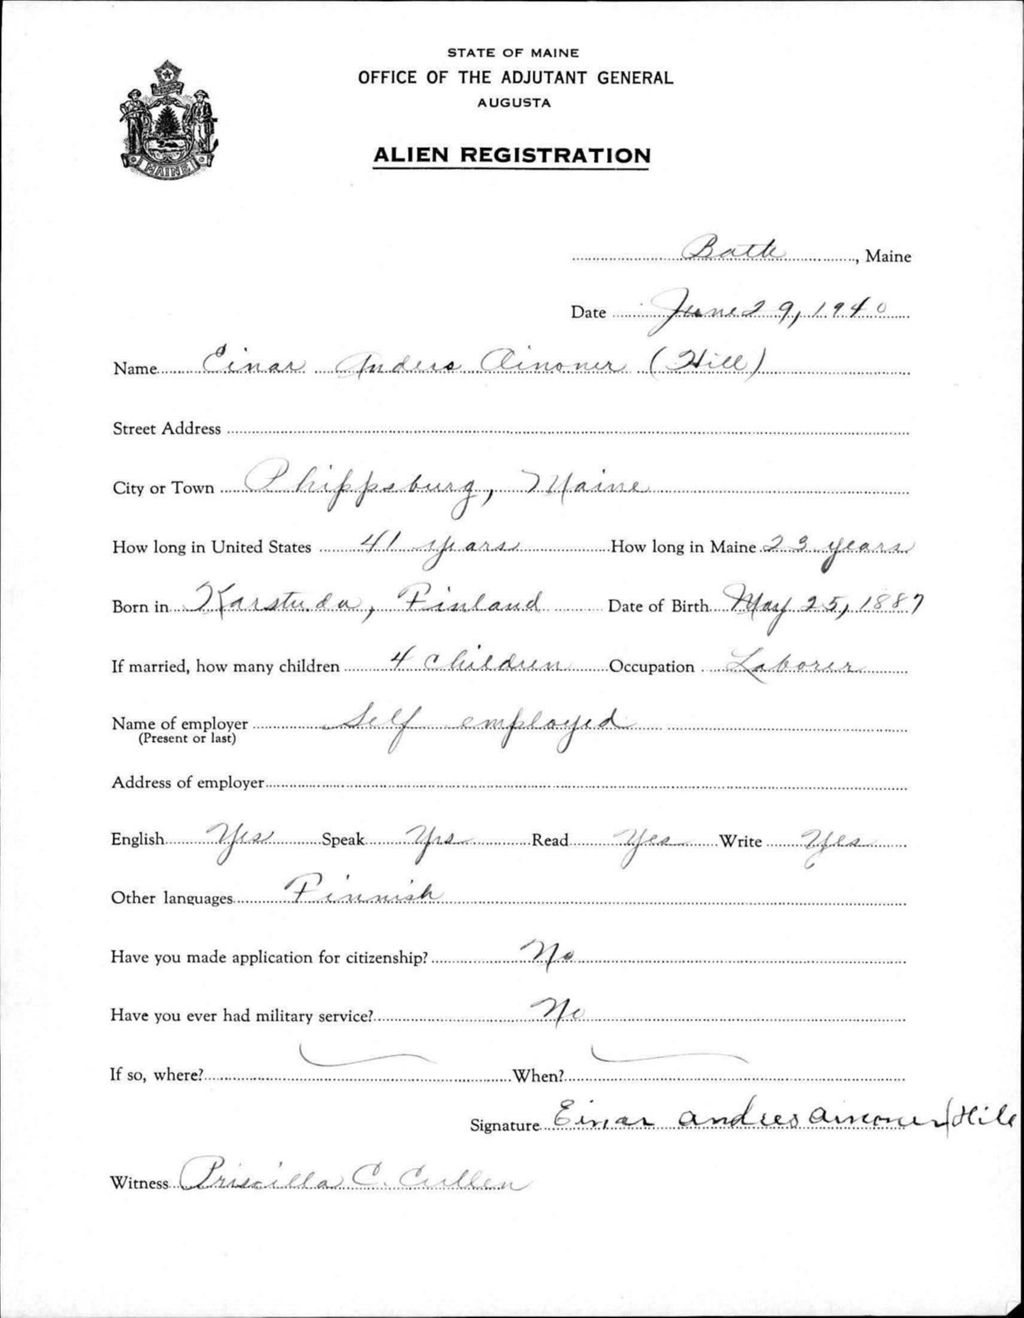 STATE OF MAINE
OFFICE OF THE ADJUTANT GENERAL
AUGUSTA
ALIEN REGISTRATION
MAINE
Bath, Maine
Date June 29, 1940
Name Einar Anders Ainoner (Hill)
Street Address
City or Town Phippsburg, Maine
How long in United States 41 years How long in Maine 23 years
Born in Karstuda, Finland Date of Birth May 25, 1887
If married, how many children 4 children Occupation Laborer
Name of employer Self employed
(Present or last)
Address of employer
English Yes Speak Yes Read Yes Write Yes
Other languages Finnish
Have you made application for citizenship? No
Have you ever had military service? No
If so, where? When?
Signature Einar Andres Ainoner (Hill
Witness Priscilla C. Cullen